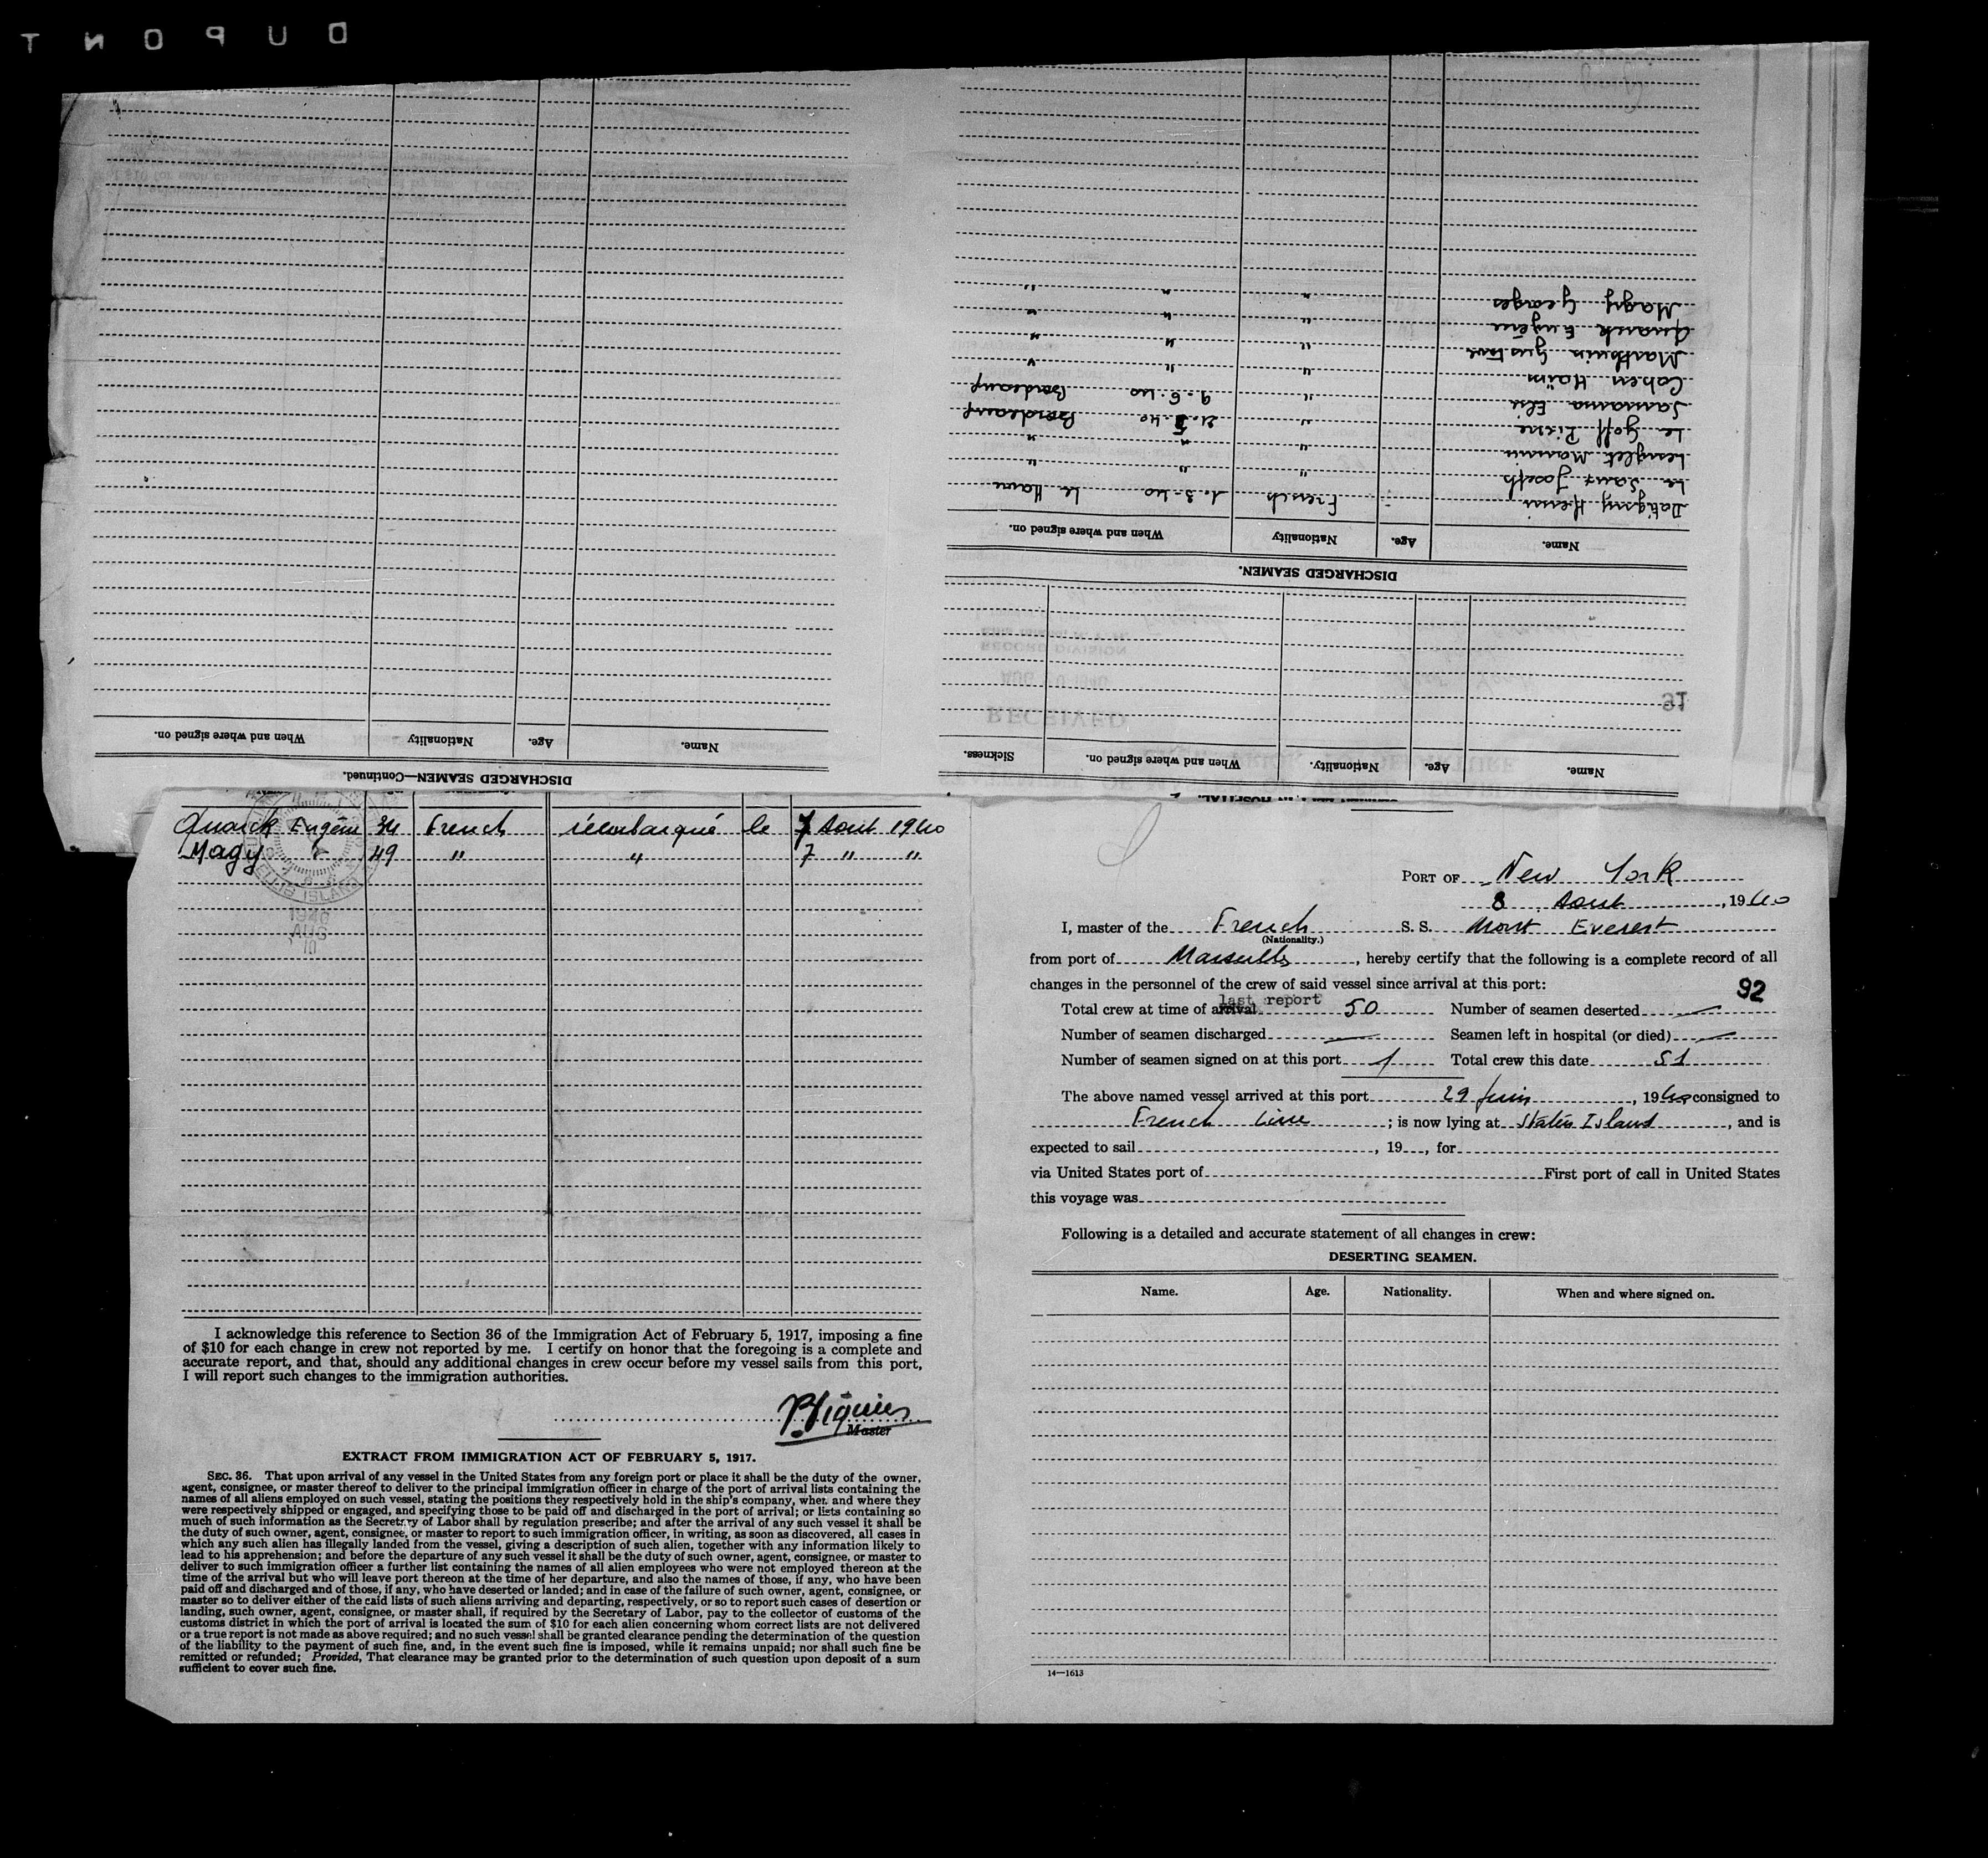 DUPONT
DISCHARGED SEAMEN—Continued.
Name. Age. Nationality When and where signed on.
SEAMEN LEFT IN HOSPITAL.
Name. Age. Nationality. When and where signed on. Sickness.
91
RECEIVED
AUG 10 1940
RECORD DIVISION
DISCHARGED SEAMEN.
Name. Age. Nationality When and where signed on.
Datigny Henri French 1.3-40 Le Havre
Le Saux Joseph " " "
Lenglet Maurin " " "
Le Goff Pierre " 21.5.40 Bordeaux
Samama Elie " 9.6.40 Bordeaux
Cohen Haïm " " "
Mathurin Gustave " " "
Quarck Eugène " " "
Magy Georges " " "
Quarck Eugène 34 French réembarqué le 7 Aout 1940
Magy 49 " " 7 " "
ELLIS ISLAND
1940
AUG
10
I acknowledge this reference to Section 36 of the Immigration Act of February 5, 1917, imposing a fine
of $10 for each change in crew not reported by me. I certify on honor that the foregoing is a complete and
accurate report, and that, should any additional changes in crew occur before my vessel sails from this port,
I will report such changes to the immigration authorities.
Master
EXTRACT FROM IMMIGRATION ACT OF FEBRUARY 5, 1917.
SEC. 36. That upon arrival of any vessel in the United States from any foreign port or place it shall be the duty of the owner,
agent, consignee, or master thereof to deliver to the principal immigration officer in charge of the port of arrival lists containing the
names of all aliens employed on such vessel, stating the positions they respectively hold in the ship's company, when and where they
were respectively shipped or engaged, and specifying those to be paid off and discharged in the port of arrival; or lists containing so
much of such information as the Secretary of Labor shall by regulation prescribe; and after the arrival of any such vessel it shall be
the duty of such owner, agent, consignee, or master to report to such immigration officer, in writing, as soon as discovered, all cases in
which any such alien has illegally landed from the vessel, giving a description of such alien, together with any information likely to
lead to his apprehension; and before the departure of any such vessel it shall be the duty of such owner, agent, consignee, or master to
deliver to such immigration officer a further list containing the names of all alien employees who were not employed thereon at the
time of the arrival but who will leave port thereon at the time of her departure, and also the names of those, if any, who have been
paid off and discharged and of those, if any, who have deserted or landed; and in case of the failure of such owner, agent, consignee, or
master so to deliver either of the caid lists of such aliens arriving and departing, respectively, or so to report such cases of desertion or
landing, such owner, agent, consignee, or master shall, if required by the Secretary of Labor, pay to the collector of customs of the
customs district in which the port of arrival is located the sum of $10 for each alien concerning whom correct lists are not delivered
or a true report is not made as above required; and no such vessel shall be granted clearance pending the determination of the question
of the liability to the payment of such fine, and, in the event such fine is imposed, while it remains unpaid; nor shall such fine be
remitted or refunded; Provided, That clearance may be granted prior to the determination of such question upon deposit of a sum
sufficient to cover such fine.
PORT OF New York
8 Aout, 1940
I, master of the French S. S. Mont Everest
(Nationality.)
from port of Marseille, hereby certify that the following is a complete record of all
changes in the personnel of the crew of said vessel since arrival at this port:
92
last report
Total crew at time of arrival 50 Number of seamen deserted —
Number of seamen discharged — Seamen left in hospital (or died) —
Number of seamen signed on at this port 1 Total crew this date 51
The above named vessel arrived at this port 29 Juin, 1940 consigned to
French Line; is now lying at Staten Island, and is
expected to sail, 19, for
via United States port of First port of call in United States
this voyage was
Following is a detailed and accurate statement of all changes in crew:
DESERTING SEAMEN.
Name. Age. Nationality. When and where signed on.
14—1613